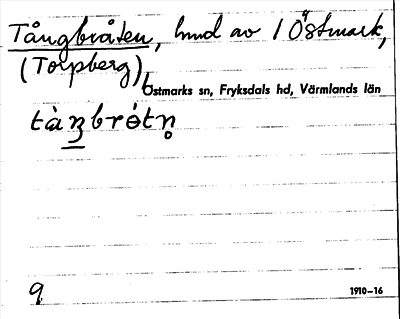 Tångbråten, hmd av 1 Östmark,
(Torpberg)
Östmarks sn, Fryksdals hd, Värmlands län
tàŋbrɵ́tn̥
9
1910–16